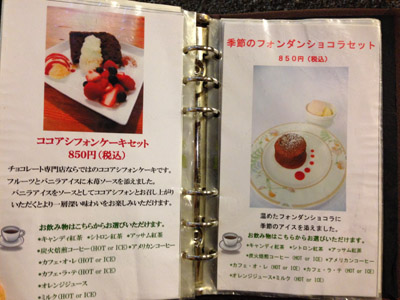 ココアシフォンケーキセット
850円(税込)
チョコレート専門店ならではのココアシフォンケーキです。
フルーツとバニラアイスに木苺ソースを添えました。
バニラアイスをソースとしてココアシフォンとお召し上がり
いただくとより一層深い味わいをお楽しみいただけます。
お飲み物はこちらからお選びいただけます。
*キャンディ紅茶 *シトロン紅茶 *アッサム紅茶
*炭火焙煎コーヒー(HOT or ICE)*アメリカンコーヒー
*カフェ・オ・レ(HOT or ICE)
*カフェ・ラ・テ(HOT or ICE)
*オレンジジュース
*ミルク(HOT or ICE)
季節のフォンダンショコラセット
850円(税込)
温めたフォンダンショコラに
季節のアイスを添えました。
お飲み物はこちらからお選びいただけます。
*キャンディ紅茶 *シトロン紅茶 *アッサム紅茶
*炭火焙煎コーヒー(HOT or ICE)*アメリカンコーヒー
*カフェ・オ・レ(HOT or ICE)*カフェ・ラ・テ(HOT or ICE)
*オレンジジュース*ミルク(HOT or ICE)